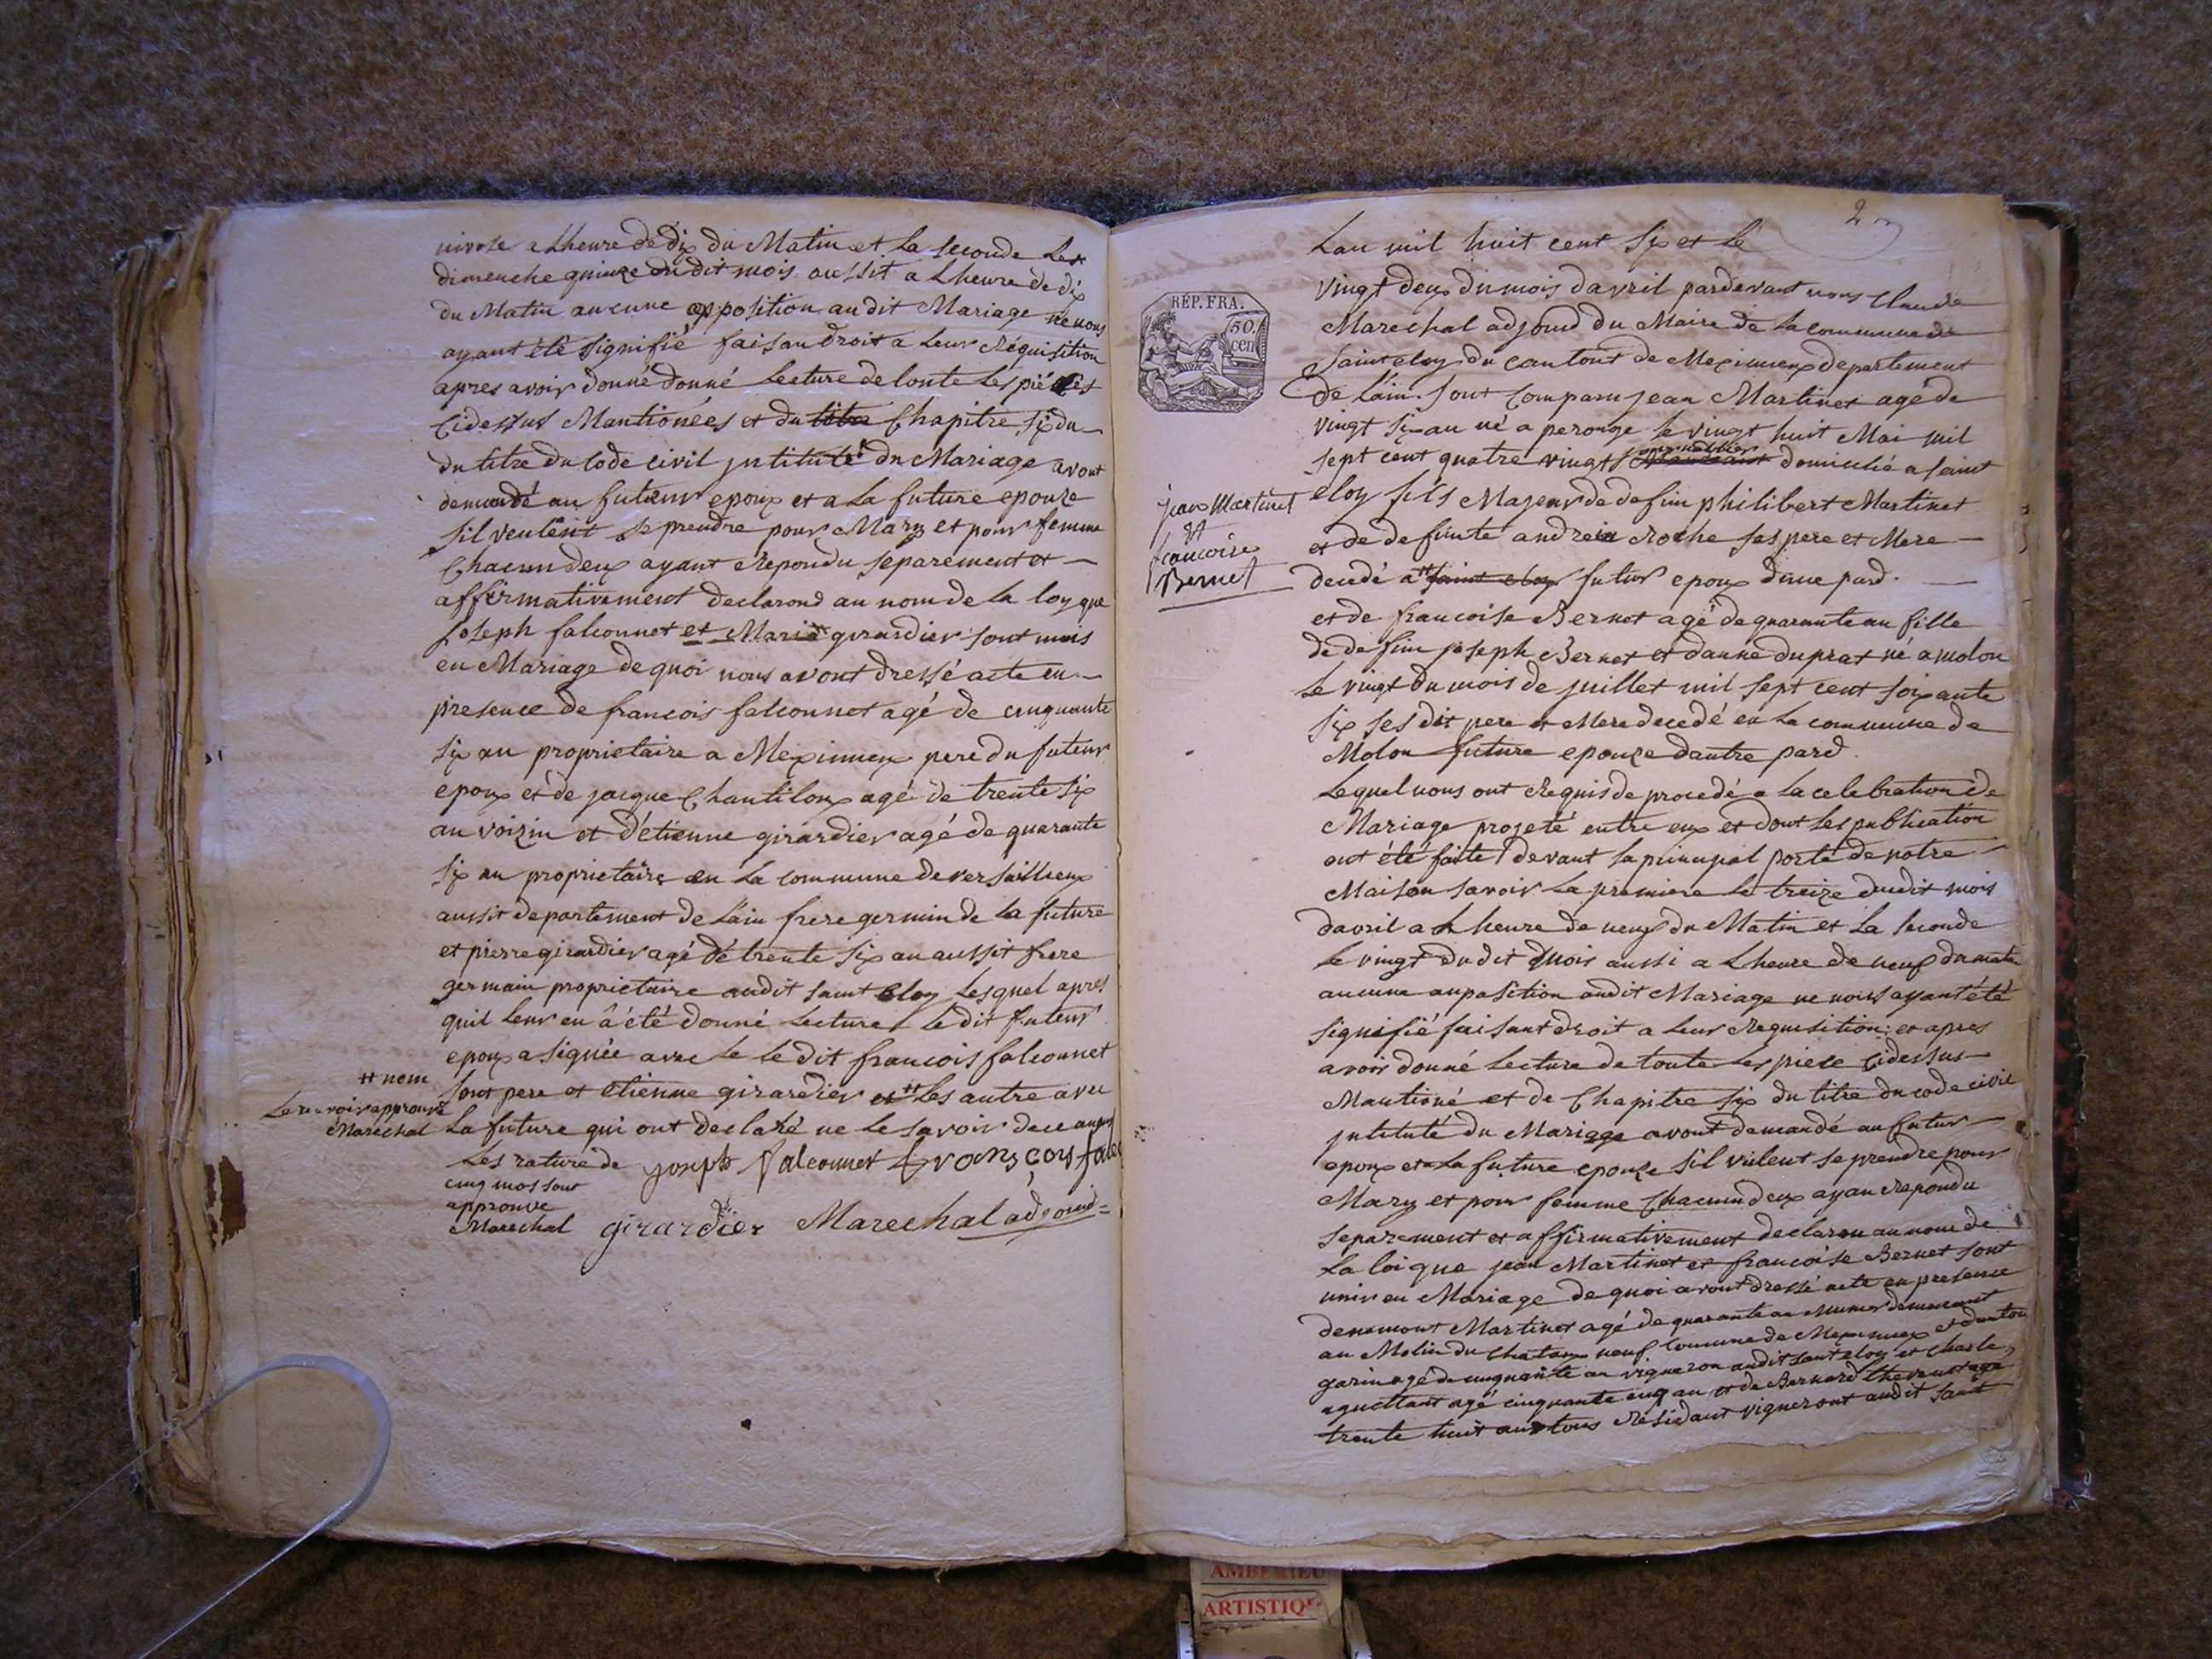 nivose a Lheure de dix du Matin et La Seconde Le
dimenche quinze du dit mois aussit a Lheure de dix
du Matin aucune opposition au dit Mariage ne nous
ayant été signifié faisan droit a Leur Réquisition
apres avoir donné donné Lecture de toute Les piéces
Cidessus Mantionées et du titre Chapitre six du
du titre du Code civil jntitulé du Mariage avont
demandé au futeur epoux et a La future epouze
Sil veulent se prendre pour Mary et pour femme
Chacun deux ayant Repondu separement et
affirmativement declarond au nom de La loy que
Joseph falconnet et Marie girardier sont unis
en Mariage de quoi nous avont dressé acte en
presence de francois falconnet agé de cinquante
six an proprietaire a Meximieux pere du futeur
epoux et de jacque Chantiloux agé de trente six
an voizin et d'etienne girardier agé de quarante
six an proprietaire en La commune de versaillieux
aussit departement de Lain frere germin de La future
et pierre girardier agé de trente six an aussit frere
germain proprietaire audit saint Eloy Lesquel apres
quil Leur en â été donné Lecture Le dit futeur
epoux a signée avec Le Le dit francois falconnet
sont pere et etienne girardier et # Les autre avec
# nom
Le renvoir approuvé
Marechal
La future qui ont declaré ne Le savoir de ce
Les raturé de
cinq mos sont
approuve
Marechal
joseph falconnet fransçois falc
girardier Marechal adjoind
2
Lan mil huit cent six et Le
vingt deux du mois davril pardevant nous Claude
Marechal adjoind du Maire de La commune de
Saint eloy du cantont de Meximieux departement
de Lain sont comparu jean Martinet agé de
vingt six an né a perouge Le vingt huit Mai mil
sept cent quatre vingt domicilié a saint
eloy fils Majeur de defun philibert Martinet
et de defunte andrein Roche ses pere et Mere
decedé a # saint eloy futur epoux dune pard.
et de francoise Bernet agé de quarante an fille
de defun joseph Bernet et danne duprat né a molon
Le vingt du mois de juillet mil sept cent soixante
six ses dit pere et Mere decedé en La commune de
Molon future epouze dautre pard
Lequel nous ont Requis de procedé a La celebration de
Mariage projeté entre eux et dont Les publication
ont été faite devant La principal porte de notre
Maison savoir La premiere Le treize dudit mois
davril a Lheure de neuf du Matin et La seconde
Le vingt du dit Mois aussi a Lheure de neuf du matin
aucune aupasition audit Mariage ne nous ayant été
signifié faisant droit a Leur Requisition et apres
avoir donné Lecture de toute Les piece cidessus
Mantioné et de Chapitre six du titre du code civil
jntitulé du Mariage avont demandé au futur
epoux et a La future epouze sil vulent se prendre pour
Mary et pour femme Chacun deux ayan Repondu
separement et affirmativement declaron au nom de
La loi que jean Martinet et francoise Bernet sont
unis en Mariage de quoi avont dressé acte en presence
Martinet agé de quarante an demeurant
au Molin du Chataux neuf Commune de Meximieux et
garin agé de cinquante an vigneron audit saint eloy et Charle
agé cinquante cinq an et de Bernard thevenet agé
trente huit an tous Résidant vigneront audit saint
RÉP. FRA.
50
cen
jean Martinet
et
francoise
Bernet
AMBERIEU
ARTISTIQ